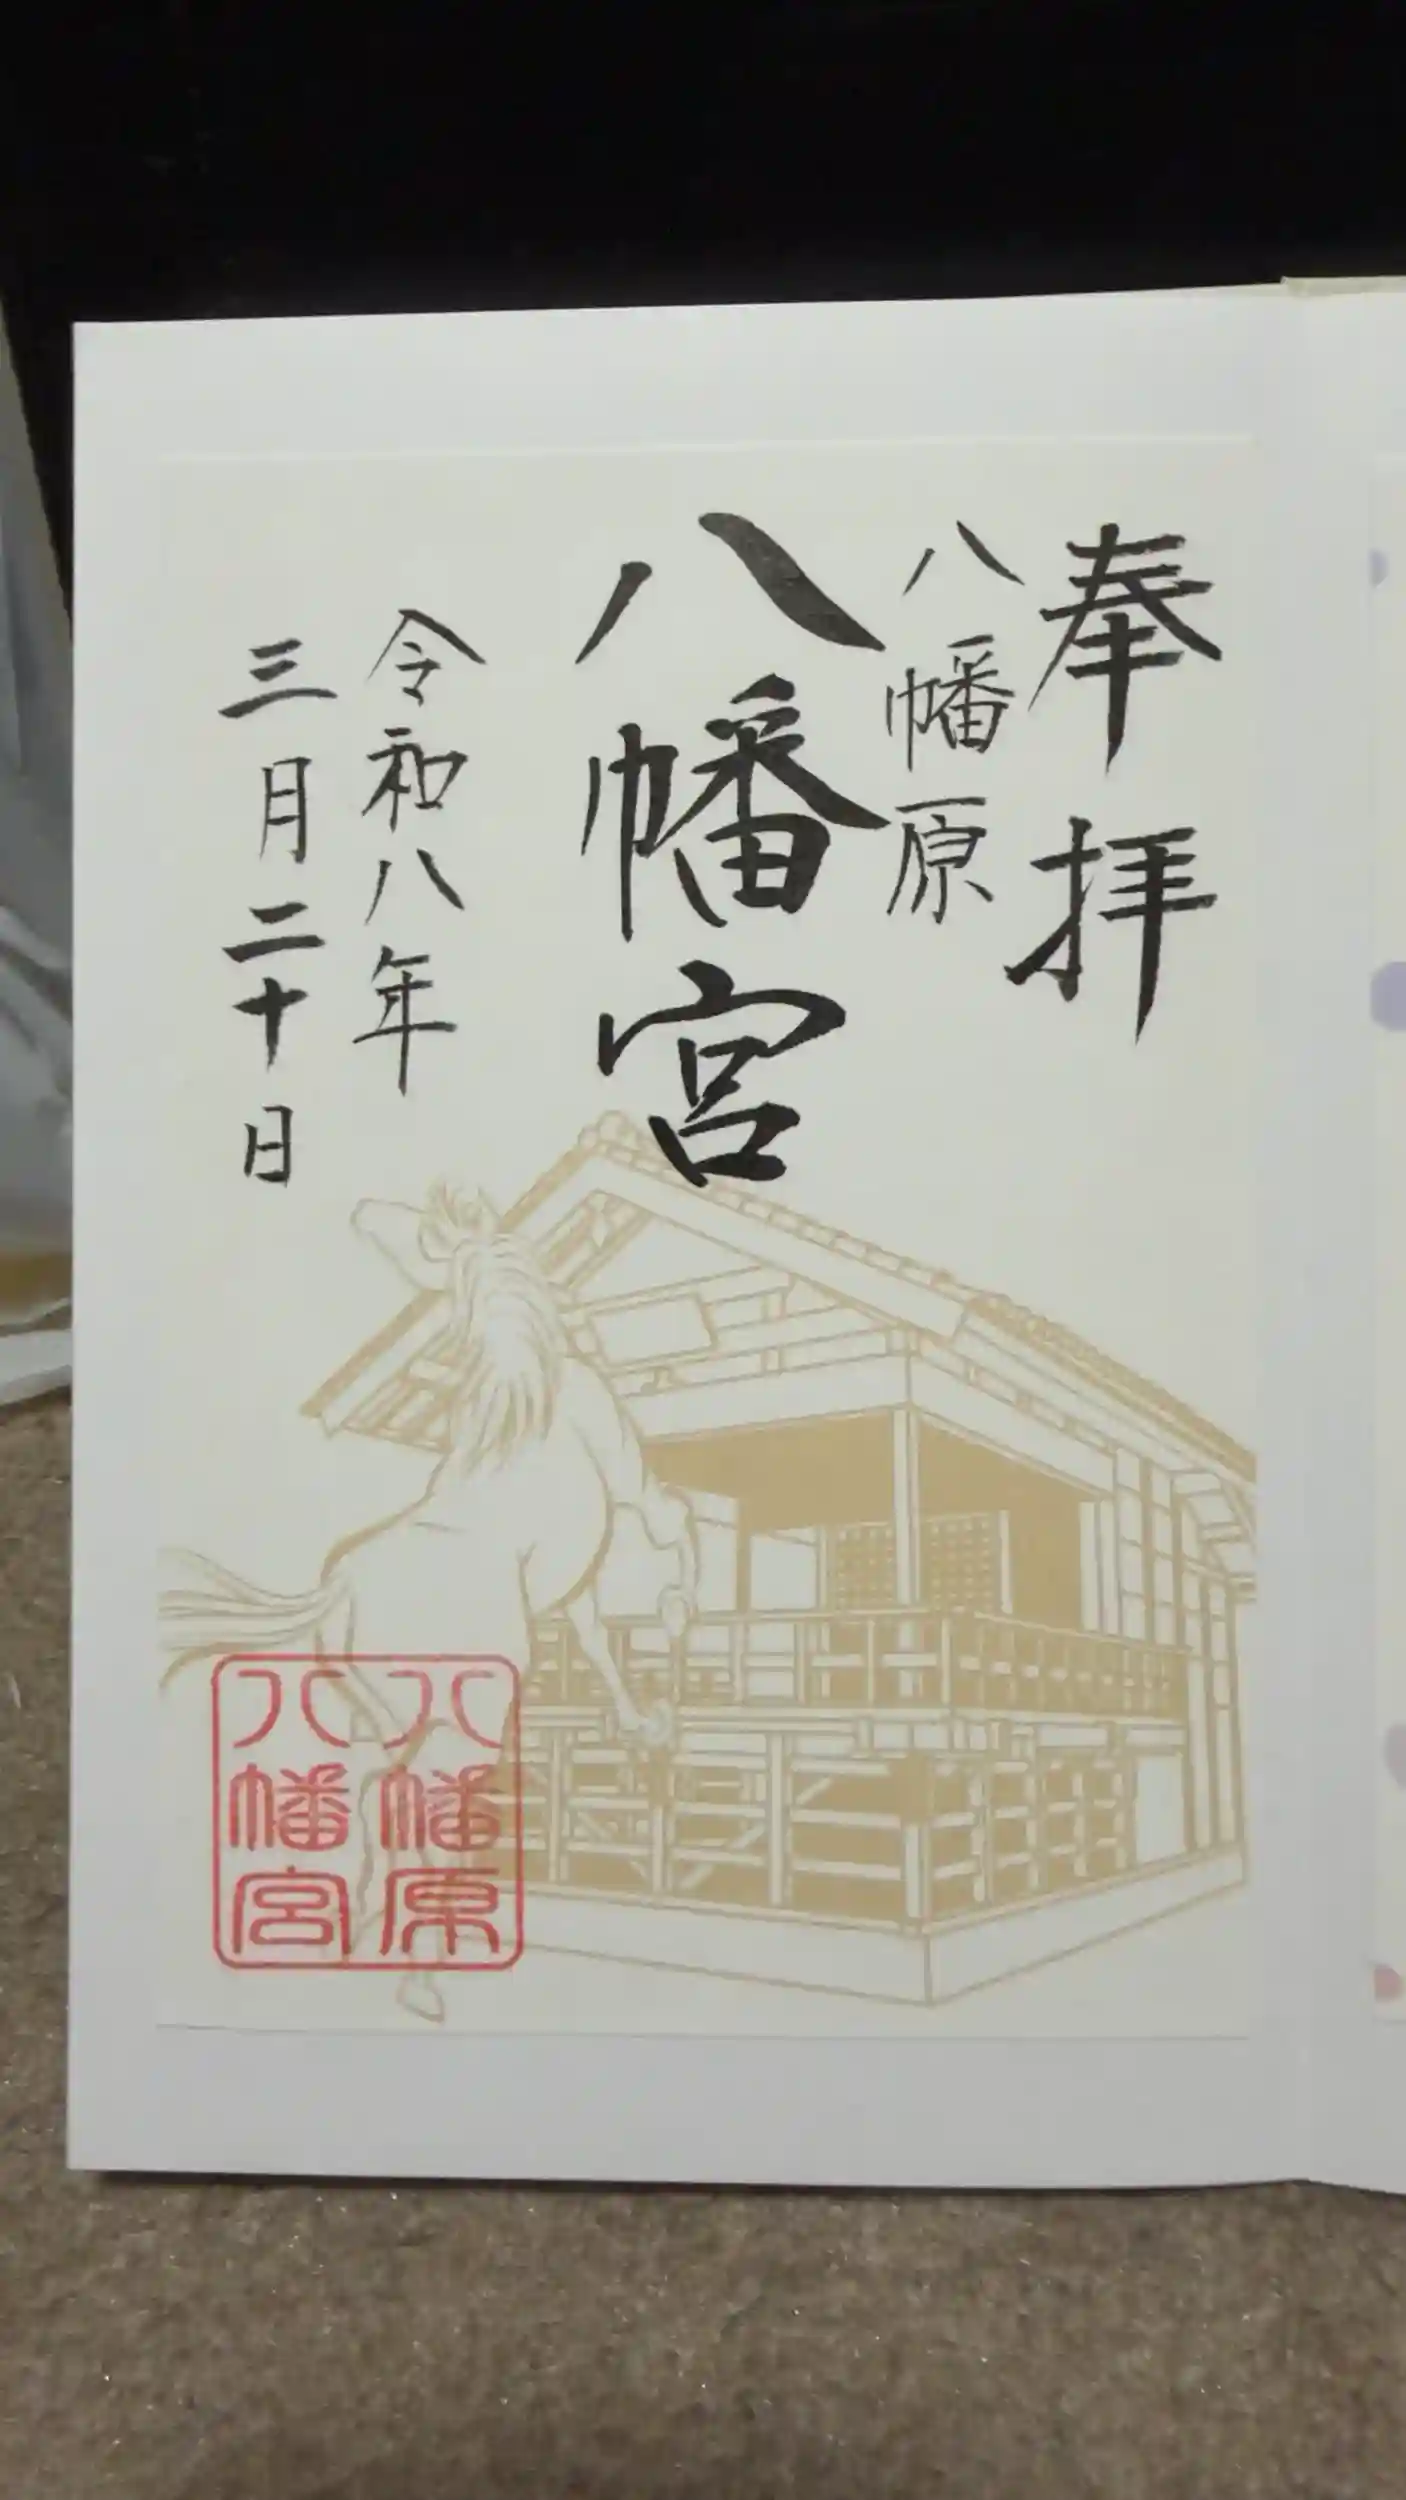 奉拝
八幡原
八幡宮
令和八年
三月二十日
八幡原
八幡宮